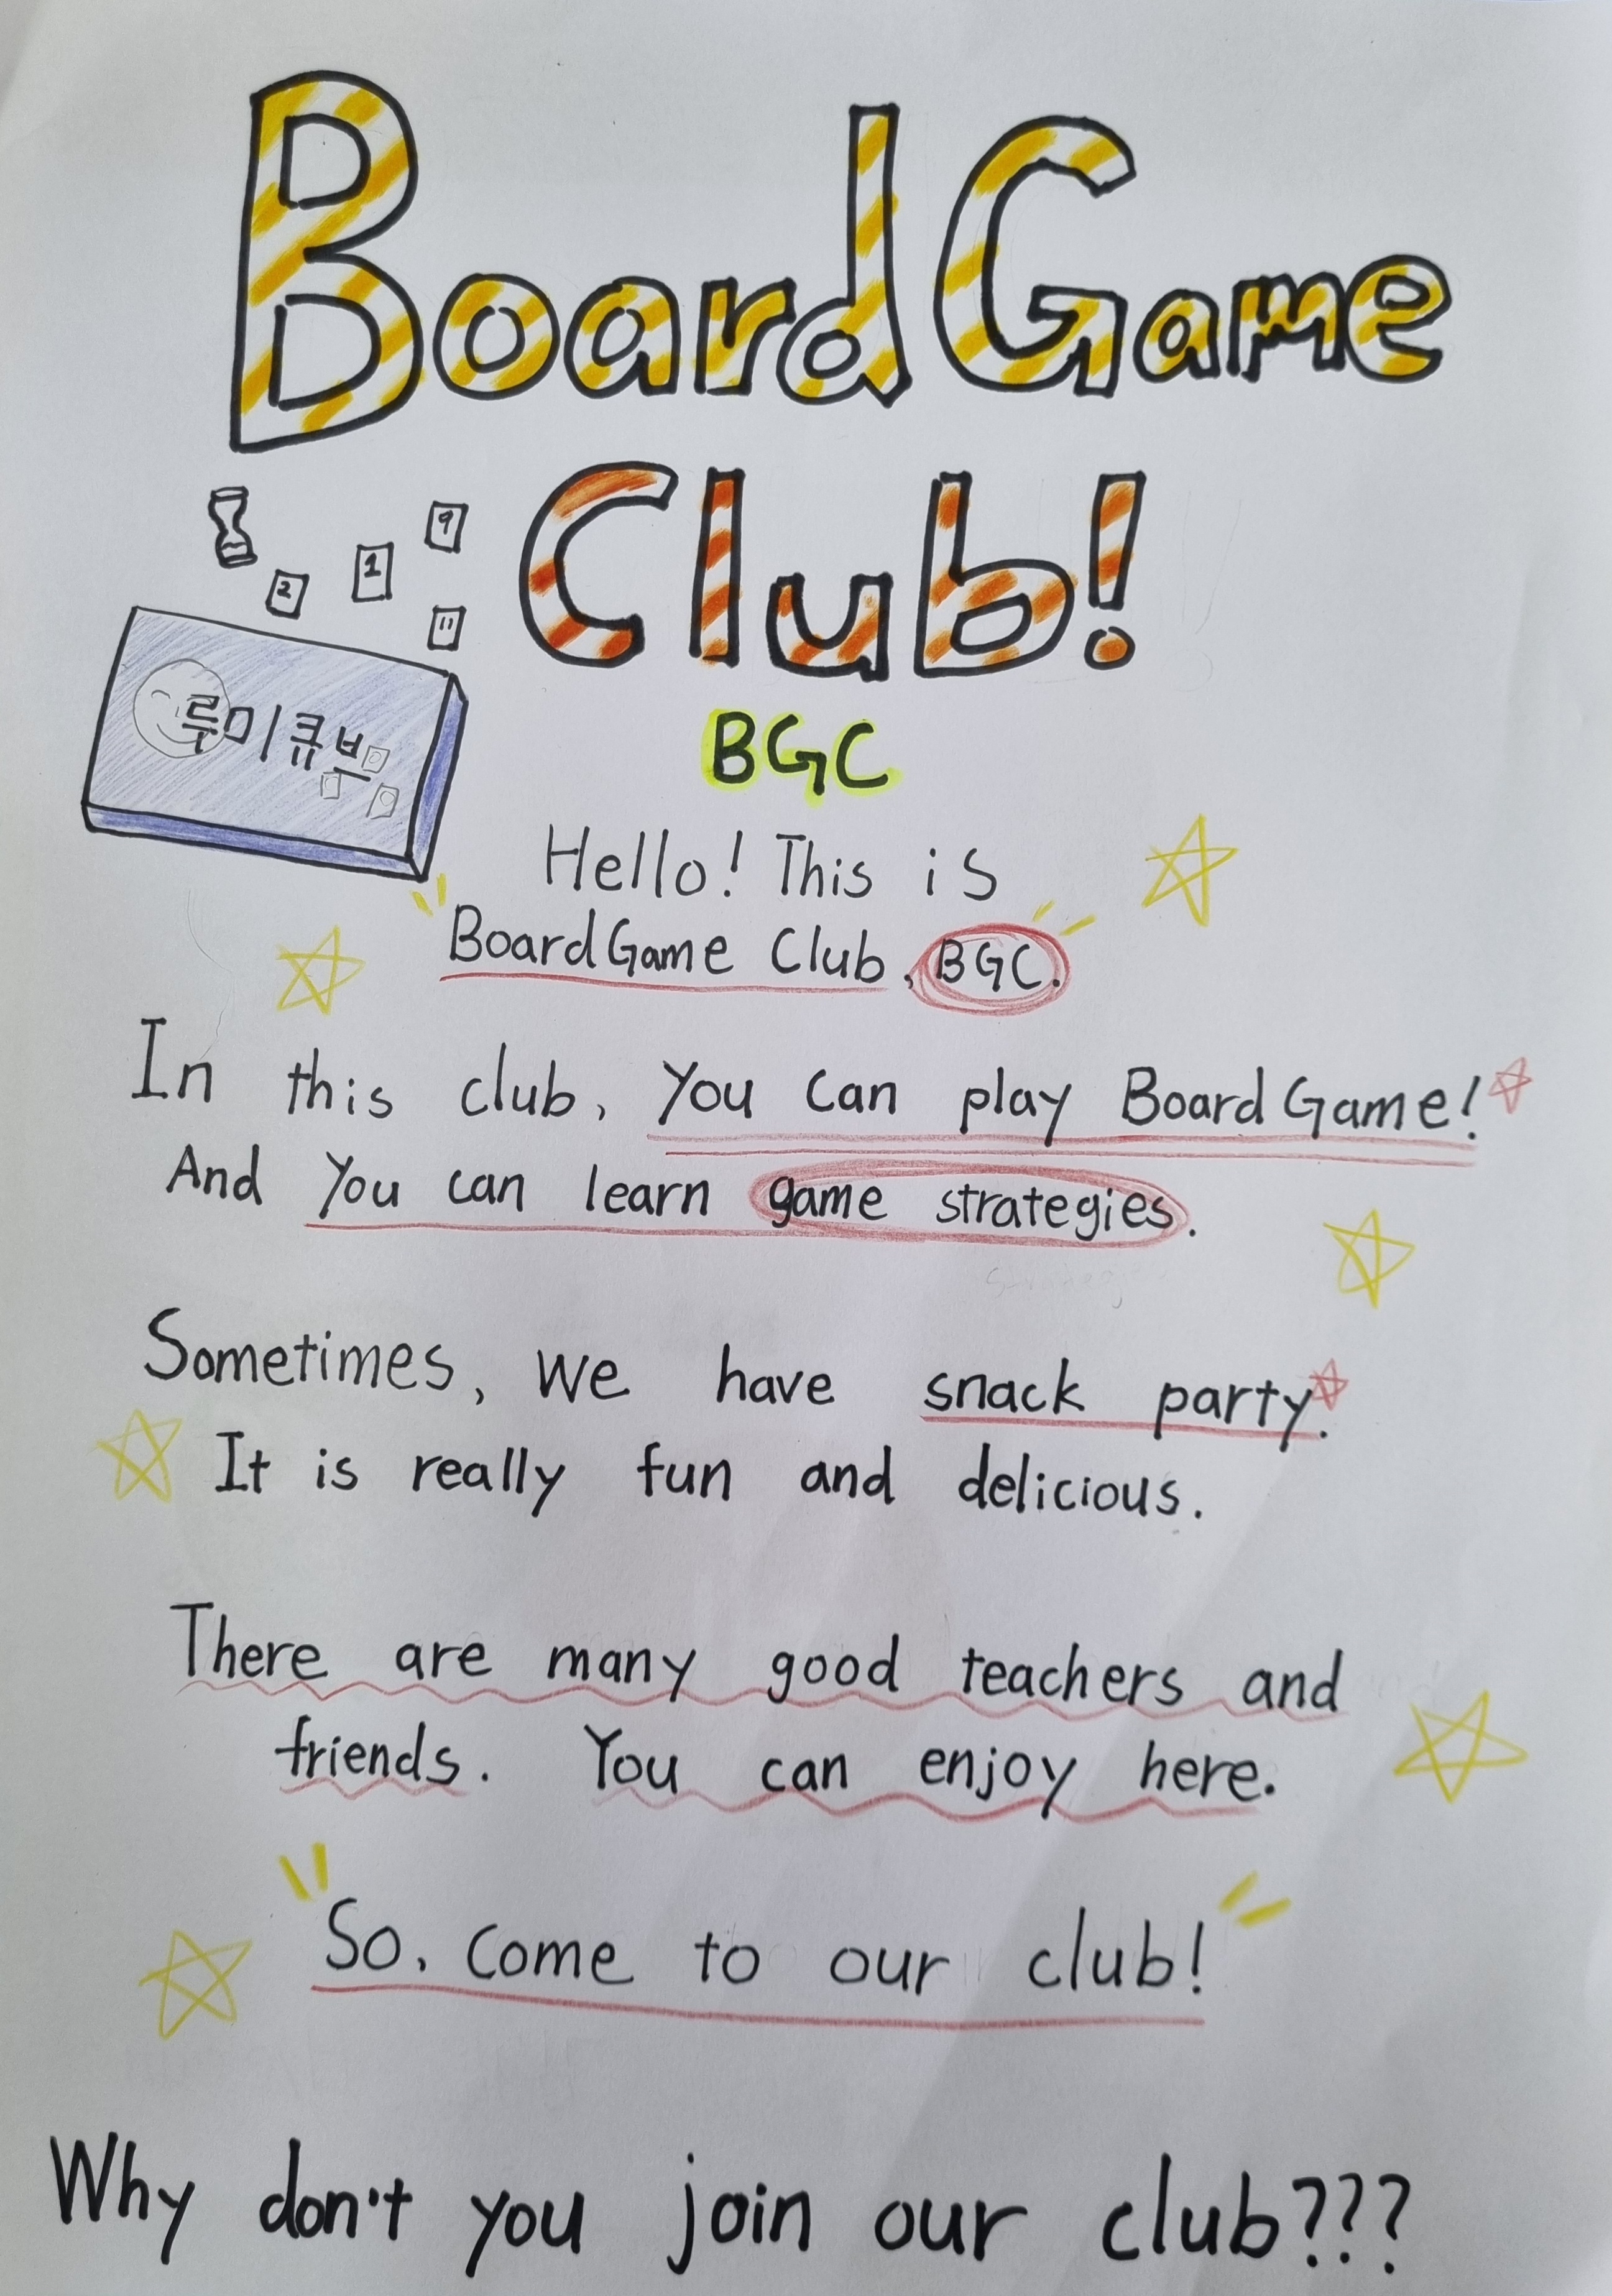 BoardGame
Club!
9
1
2
11
루미큐브
BGC
Hello! This is
BoardGame Club, BGC.
In this club, You can play BoardGame!
And You can learn game strategies.
Sometimes, We have snack party.
It is really fun and delicious.
There are many good teachers and
friends. You can enjoy here.
So, Come to our club!
Why don't you join our club???